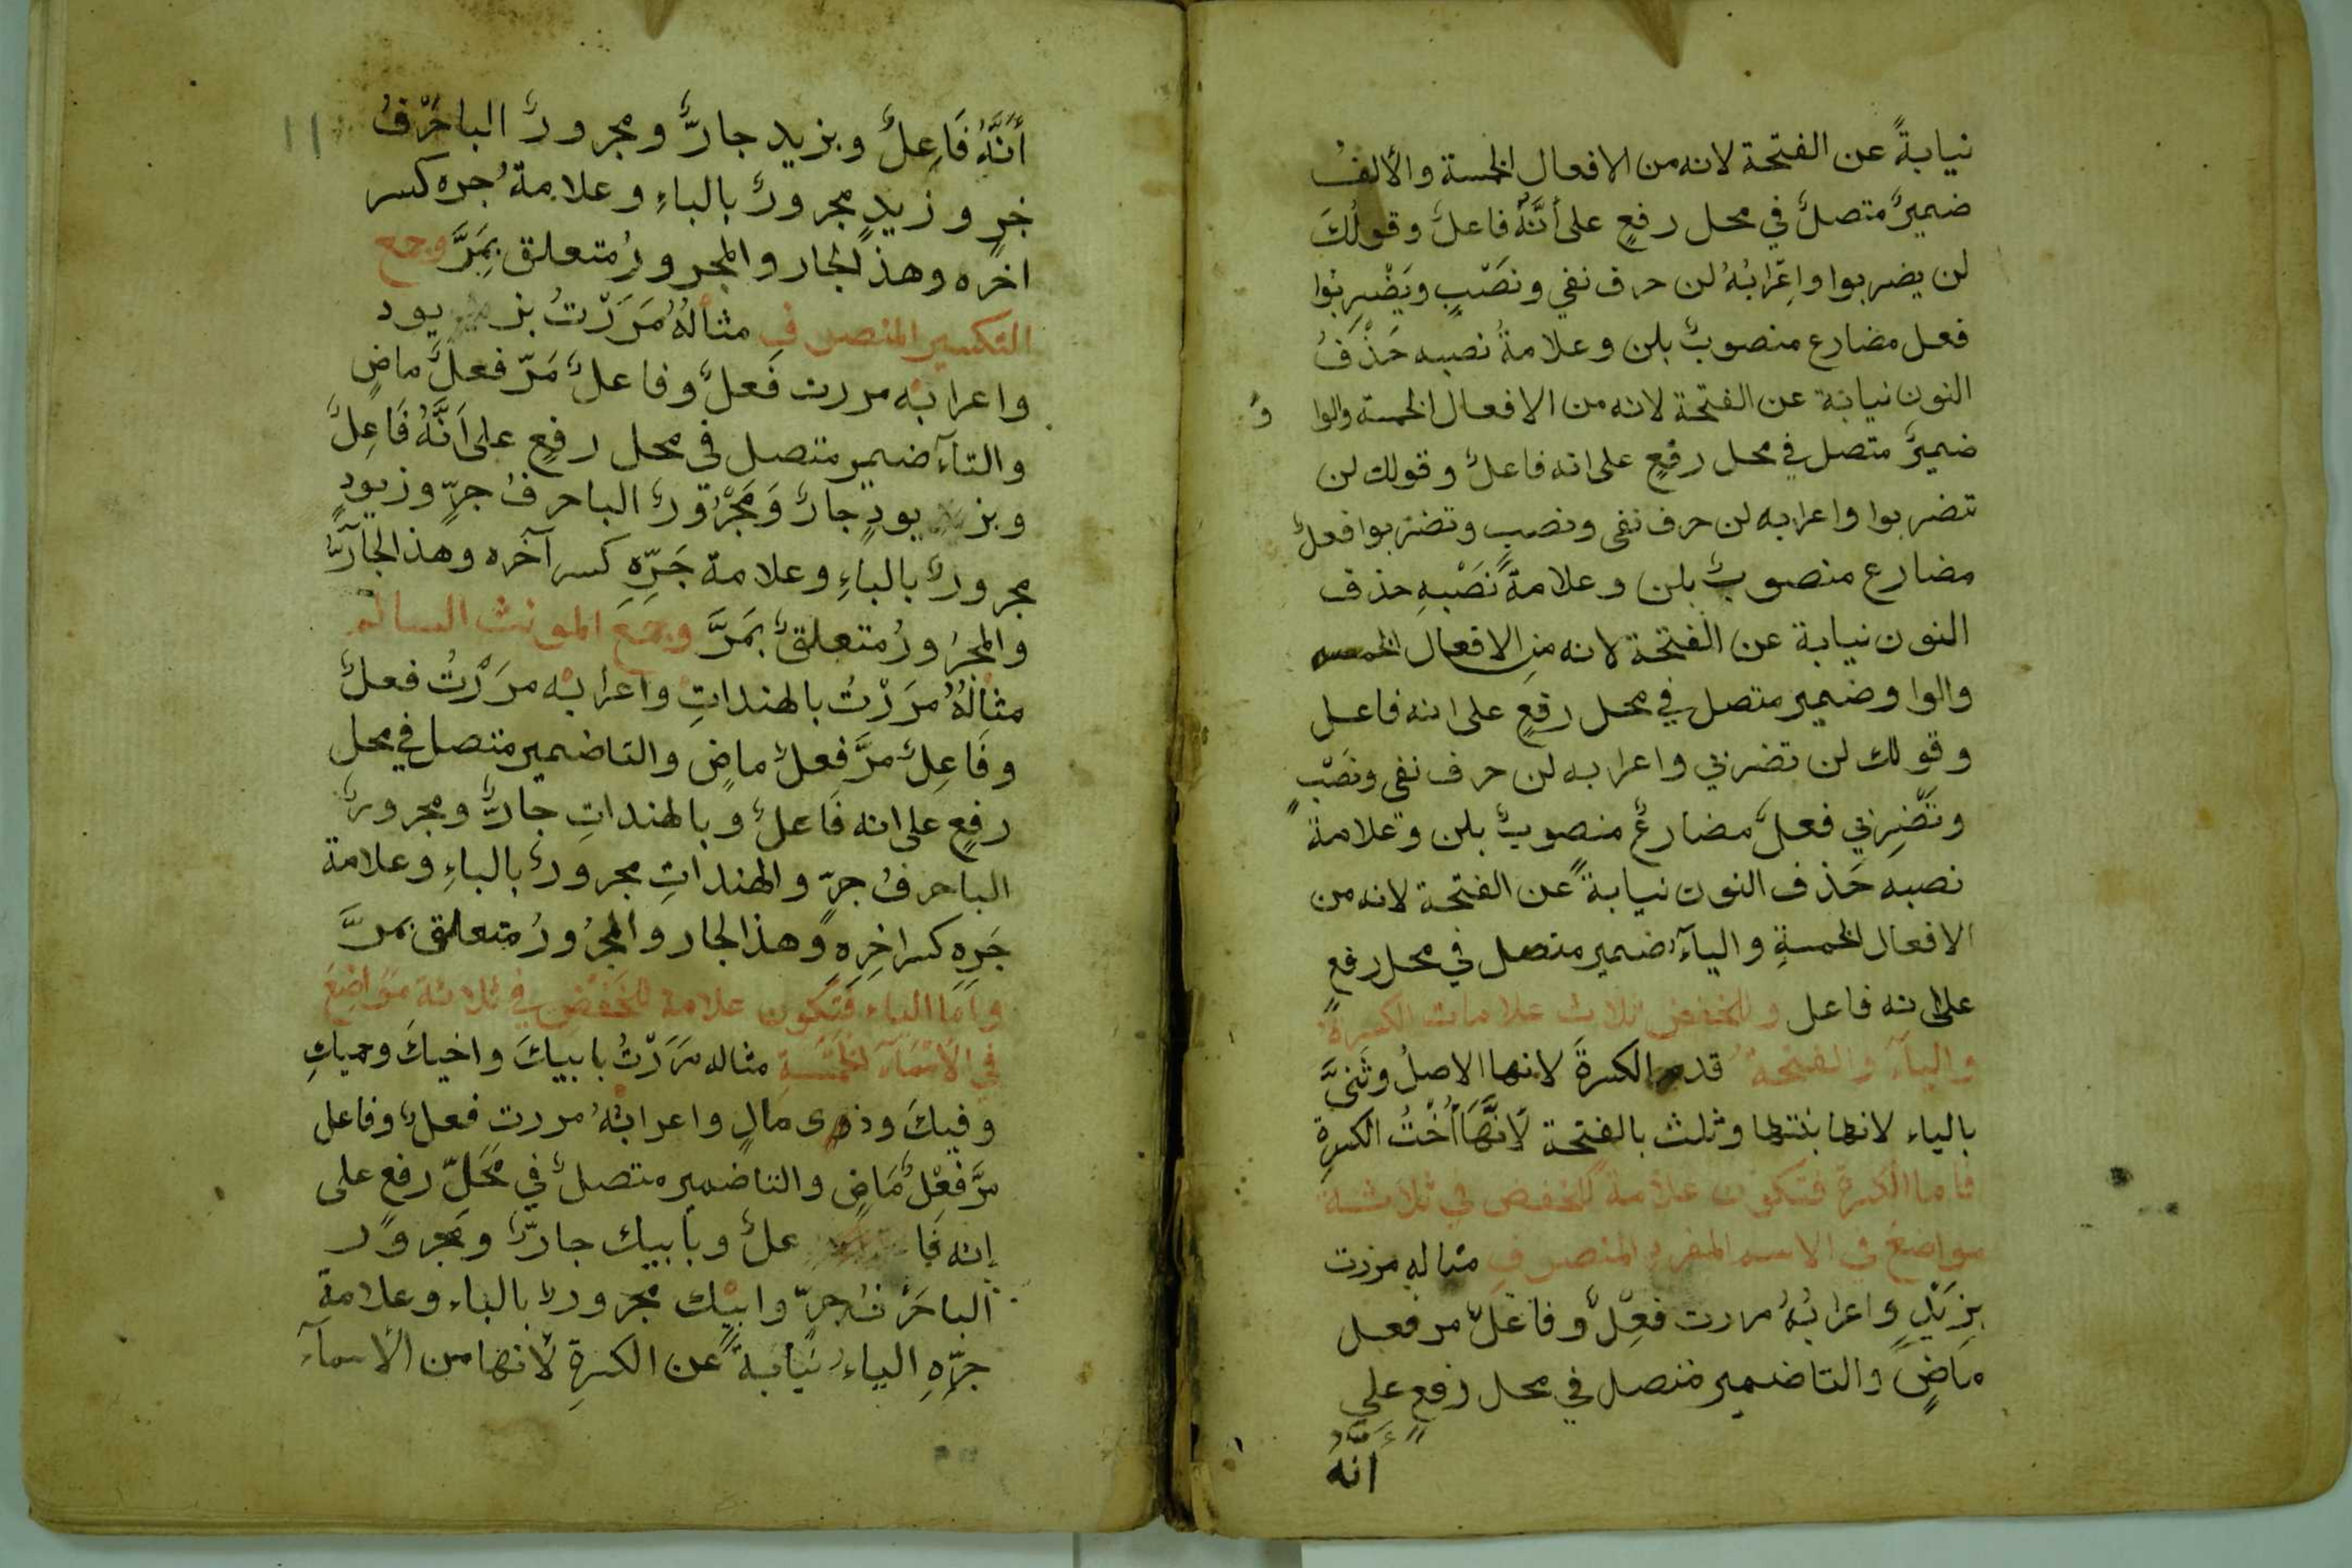 نيابةً عن الفتحة لانه من الافعال الخمسة والألفُ
ضميرٌ متصلٌ في محل رفعٍ على أنَّهُ فاعلٌ وقولُكَ
لن يضربوا واِعْرَابُهُ لن حرف نفي ونَصْبٍ ويَضْرِبُوا
فعل مضارع منصوبٌ بلن وعلامةُ نصبه حَذْفُ
النون نيابة عن الفتحة لانه من الافعال الخمسة والوا وُ
ضميرٌ متصل في محل رفعٍ على انه فاعلٌ وقولك لن
تضربوا واعرابه لن حرف نفى ونصب وتضربوا فعلٌ
مضارع منصوبٌ بلن وعلامةُ نَصْبِهِ حذف
النون نيابة عن الفتحة لانه من الافعال الخمسه
والواو ضمير متصل في محل رفعٍ على انه فاعل
وقولك لن تضربي واعرابه لن حرف نفى ونَصْبٍ
وتَضْرِبي فعلٌ مضارعٌ منصوبٌ بلن وعلامةُ
نصبه حَذف النون نيابةً عن الفتحة لانه من
الافعال الخمسةِ واليآءُ ضمير متصل في محل رفعٍ
على انه فاعل وللخفض ثلاث علامات الكسرةُ
واليآء والفتحةُ قدم الكسرةَ لانها الاصلُ وثَنىَّ
بالياء لانها بنتها وثلث بالفتحة لأنَّهَا أُخْتُ الكسرةِ
فاما الكسرةُ فتكون علامةً للخفض في ثلاثة
مواضعَ في الاسم المفرد المنصرف مثاله مررت
بِزَيْدٍ واعرابُهُ مررت فِعْلٌ وفاعلٌ مر فعل
مَاضٍ والتا ضمير متصل في محل رفعٍ علي
أنَّهُ
أنَّهُ فَاعِلٌ وبزيد جارٌّ ومجرورٌ الباحَرْفُ
جرٍ وزيدٍ مجرورٌ بالباءِ وعلامةُ جره كسر
اخره وهذ الجار والمجرورُ متعلق بِمَرَّ وجمع
التكسير المنصرف مثالُهُ مَرَرْتُ بز يود
واعرابه مررت فَعلٌ وفاعلٌ مَرّ فعلٌ ماضٍ
والتآء ضمير متصل في محل رفعٍ على اَنَّهُ فَاعِلٌ
وبز يودٍ جارٌ وَمَجْرُورٌ الباحرفُ جرٍّ وزيودٍ
مجرورٌ بالباءِ وعلامة جَرِّهِ كسر آخره وهذ الجارُّ
والمجرُورُ متعلقٌ بمَرَّ وجمعَ المونث السالم
مثالُهُ مَرَرْتُ بالهنداتِ واعرابه مرَرْتُ فعلٌ
وفَاعِلٌ مرَّ فعلٌ ماضٍ والتا ضمير متصل في محل
رفعٍ على انه فَاعلٌ وبالهنداتِ جارٌّ ومجرورٌ
الباحرفُ جرٍّ والهنداتِ مجرورٌ بالباءِ وعلامة
جَرِهِ كسر اخِرِهِ وهذ الجار والمجرُورُ متعلق بمرَّ
وَاَمَا الياء فَتَكون علامة للخَفْضِ في ثلاثة مَوَاضِعَ
في الاَسْمَآءِ الخَمْسَةِ مثاله مَرَرْتُ بابيكَ واخيكَ وحميكِ
وفيكَ وذى مالٍ واعرابُهُ مررت فعلٌ وفاعل
مرَّ فِعْلٌ مَاضٍ والتا ضمير متصلٌ في مَحَلِّ رفعٍ على
إنه فَا علٌ وبأبيك جارٌّ ومجرورٌ
الباحَرْفُ جرٍّ وابيك مجرورٌ بالباء وعلامة
جرِّهِ الياءُ نيَابةً عن الكسرةِ لأنها من الأسمآء